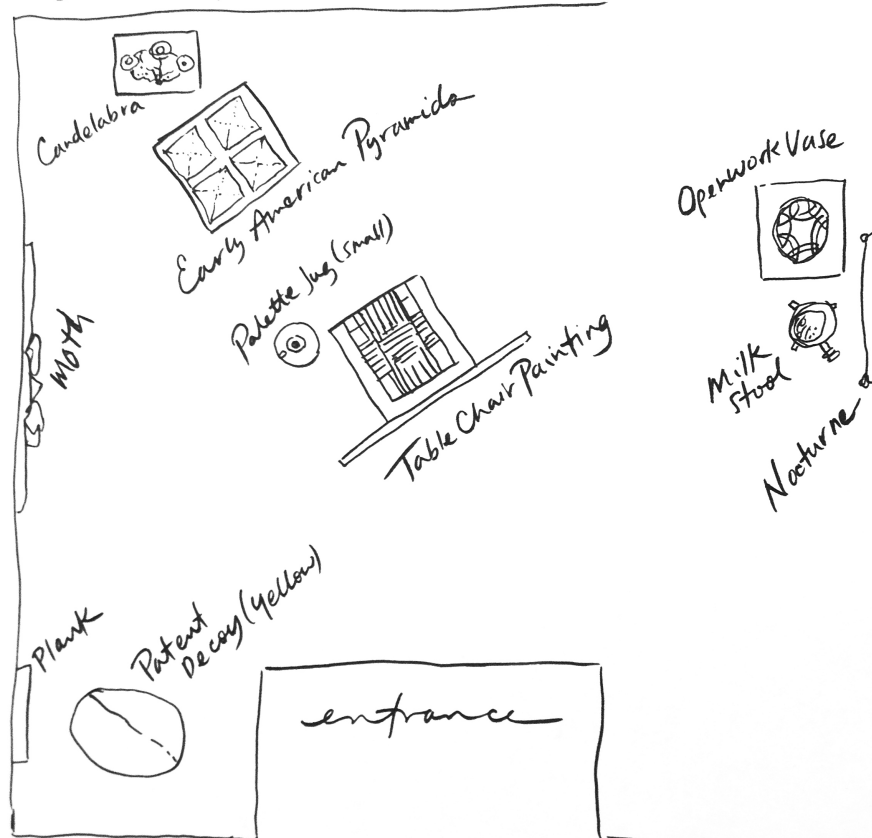 Candelabra
Early American Pyramids
Openwork Vase
Palette Jug (small)
Moth
Table Chair Painting
Milk
Stool
Nocturne
Plank
Patent
Decoy (yellow)
entrance